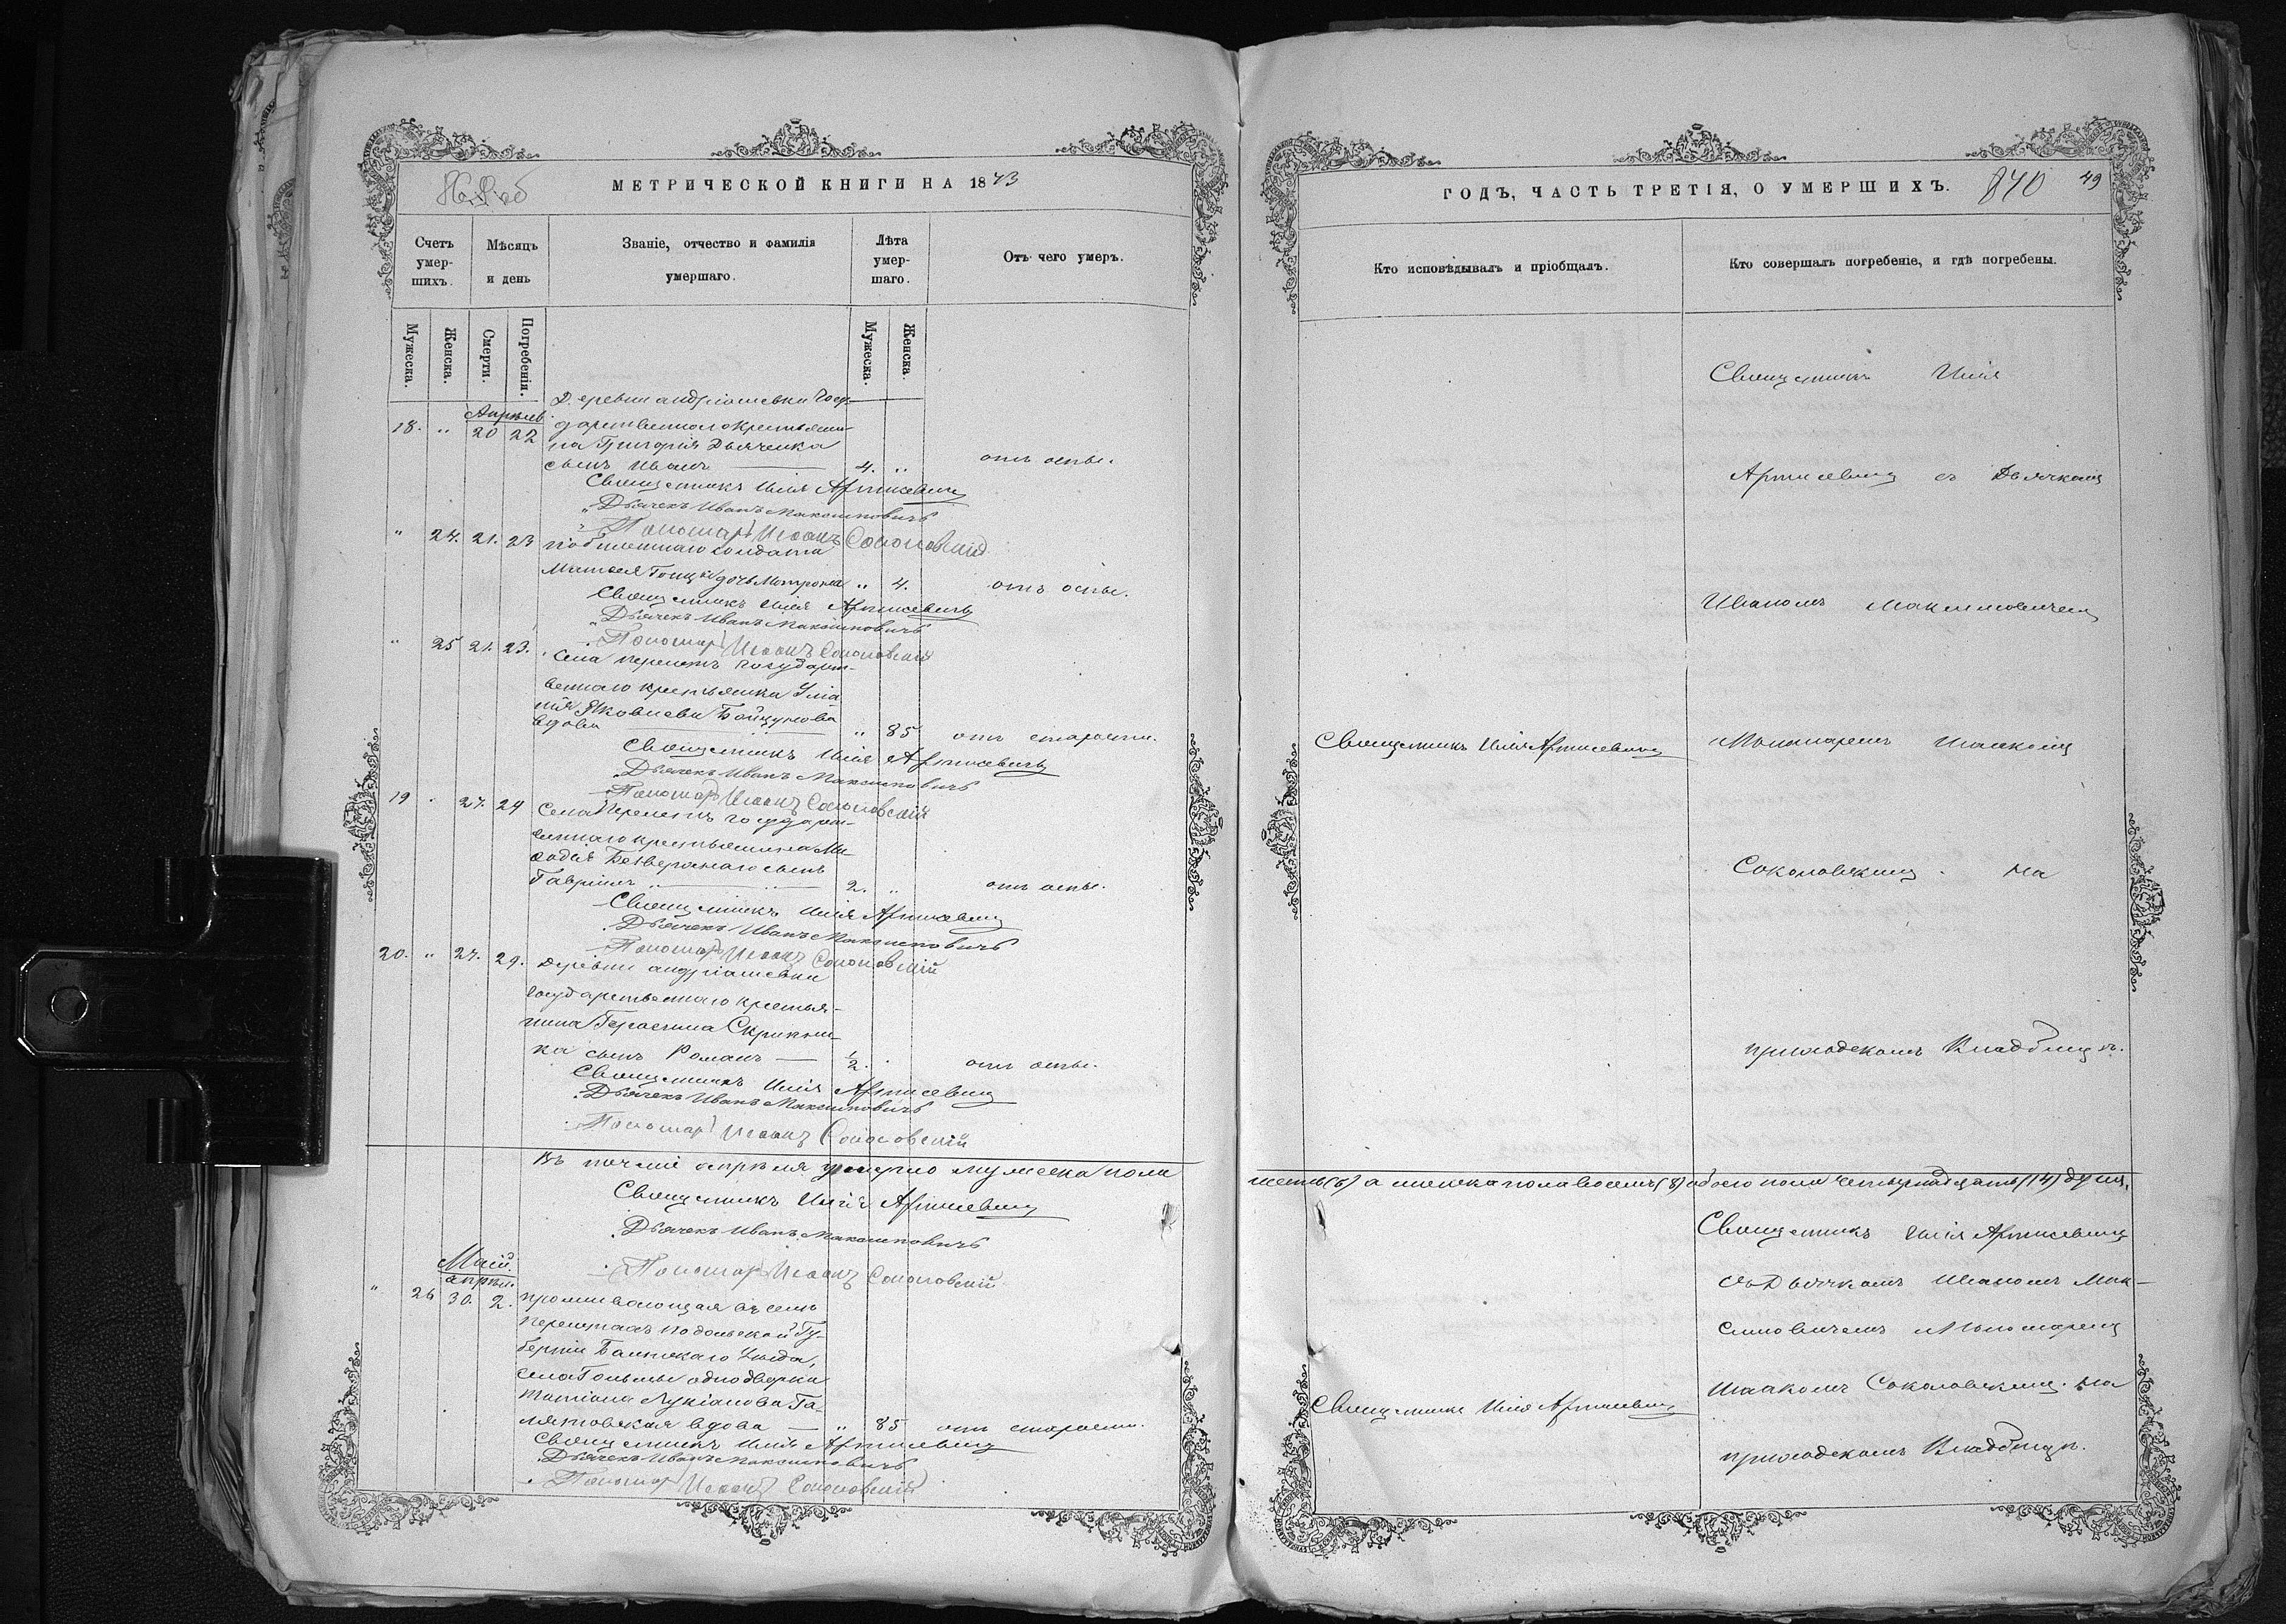 МЕТРИЧЕСКОЙ КНИГИ НА 1873
Счетъ умер-шихъ.
Мѣсяцъ и день
Званіе, отчество и фамилія умершаго.
Лѣта умер-шаго.
Отъ чего умеръ.
Мужеска.
Женска.
Смерти.
Погребенія.
Мужеска.
Женска.
Деревни Андріяшевки Госу-
Апрѣль.
18. " 20 22 дарственнаго крестьяни-
на Григорія Дьяченка
сынъ Иванъ 4. " отъ оспы.
Священникъ Илія
Дьячекъ Иванъ Максимовичъ
Пономарь Исаакъ Соколовскій
" 24. 21. 23 солдата
Матвея дочь Матрона " 4. отъ оспы.
Священникъ Илія
Дьячекъ Иванъ Максимовичъ
Пономарь Исаакъ Соколовскій
" 25 21. 23. Села Перелетъ Государст-
веннаго крестьянина
Яковлева
вдова " 85 отъ старости.
Священникъ Илія
Дьячекъ Иванъ Максимовичъ
Пономарь Исаакъ Соколовскій
19 . 27. 29 Села Перелетъ Государст-
веннаго крестьянина Ме
фодія сынъ
Гавріилъ 2. " отъ оспы.
Священникъ Илія
Дьячекъ Иванъ Максимовичъ
Пономарь Исаакъ Соколовскій
20. " 27. 29. Деревни Андріяшевки
Государственнаго крестья-
нина Герасима Скрипни-
ка сынъ Романъ 1/2. отъ оспы.
Священникъ Илія
Дьячекъ Иванъ Максимовичъ
Пономарь Исаакъ Соколовскій
Въ апрѣля умерло мужеска пола
Священникъ Илія
Дьячекъ Иванъ Максимовичъ
Пономарь Исаакъ Соколовскій
Май.
апрѣл.
" 26 30. 2. проживающая въ селѣ
Перелетахъ Подольской Гу-
берніи Балтскаго Уѣзда,
села Гольмы однодворка
Татіана Лукіанова Га-
вдова " 85 отъ старости.
Священникъ Илія
Дьячекъ Иванъ Максимовичъ
Пономарь Исаакъ Соколовскій
ГОДЪ, ЧАСТЬ ТРЕТІЯ, О УМЕРШИХЪ. 840 49
Кто исповѣдывалъ и пріобщалъ.
Кто совершалъ погребеніе, и гдѣ погребены.
Священникъ Илія
съ Дьячкомъ
Иваномъ Максимовичемъ
Священникъ Илія
Пономаремъ Исаакомъ
Соколовскимъ. на
приходскомъ кладбищѣ.
шесть (6) а женска пола восемь (8) обоего пола четырнадцать (14) душ.
Священникъ Илія
съ Дьячкомъ Иваномъ Мак-
симовичемъ и Пономаремъ
Исаакомъ Соколовскимъ. на
Священникъ Илія
приходскомъ кладбищѣ.